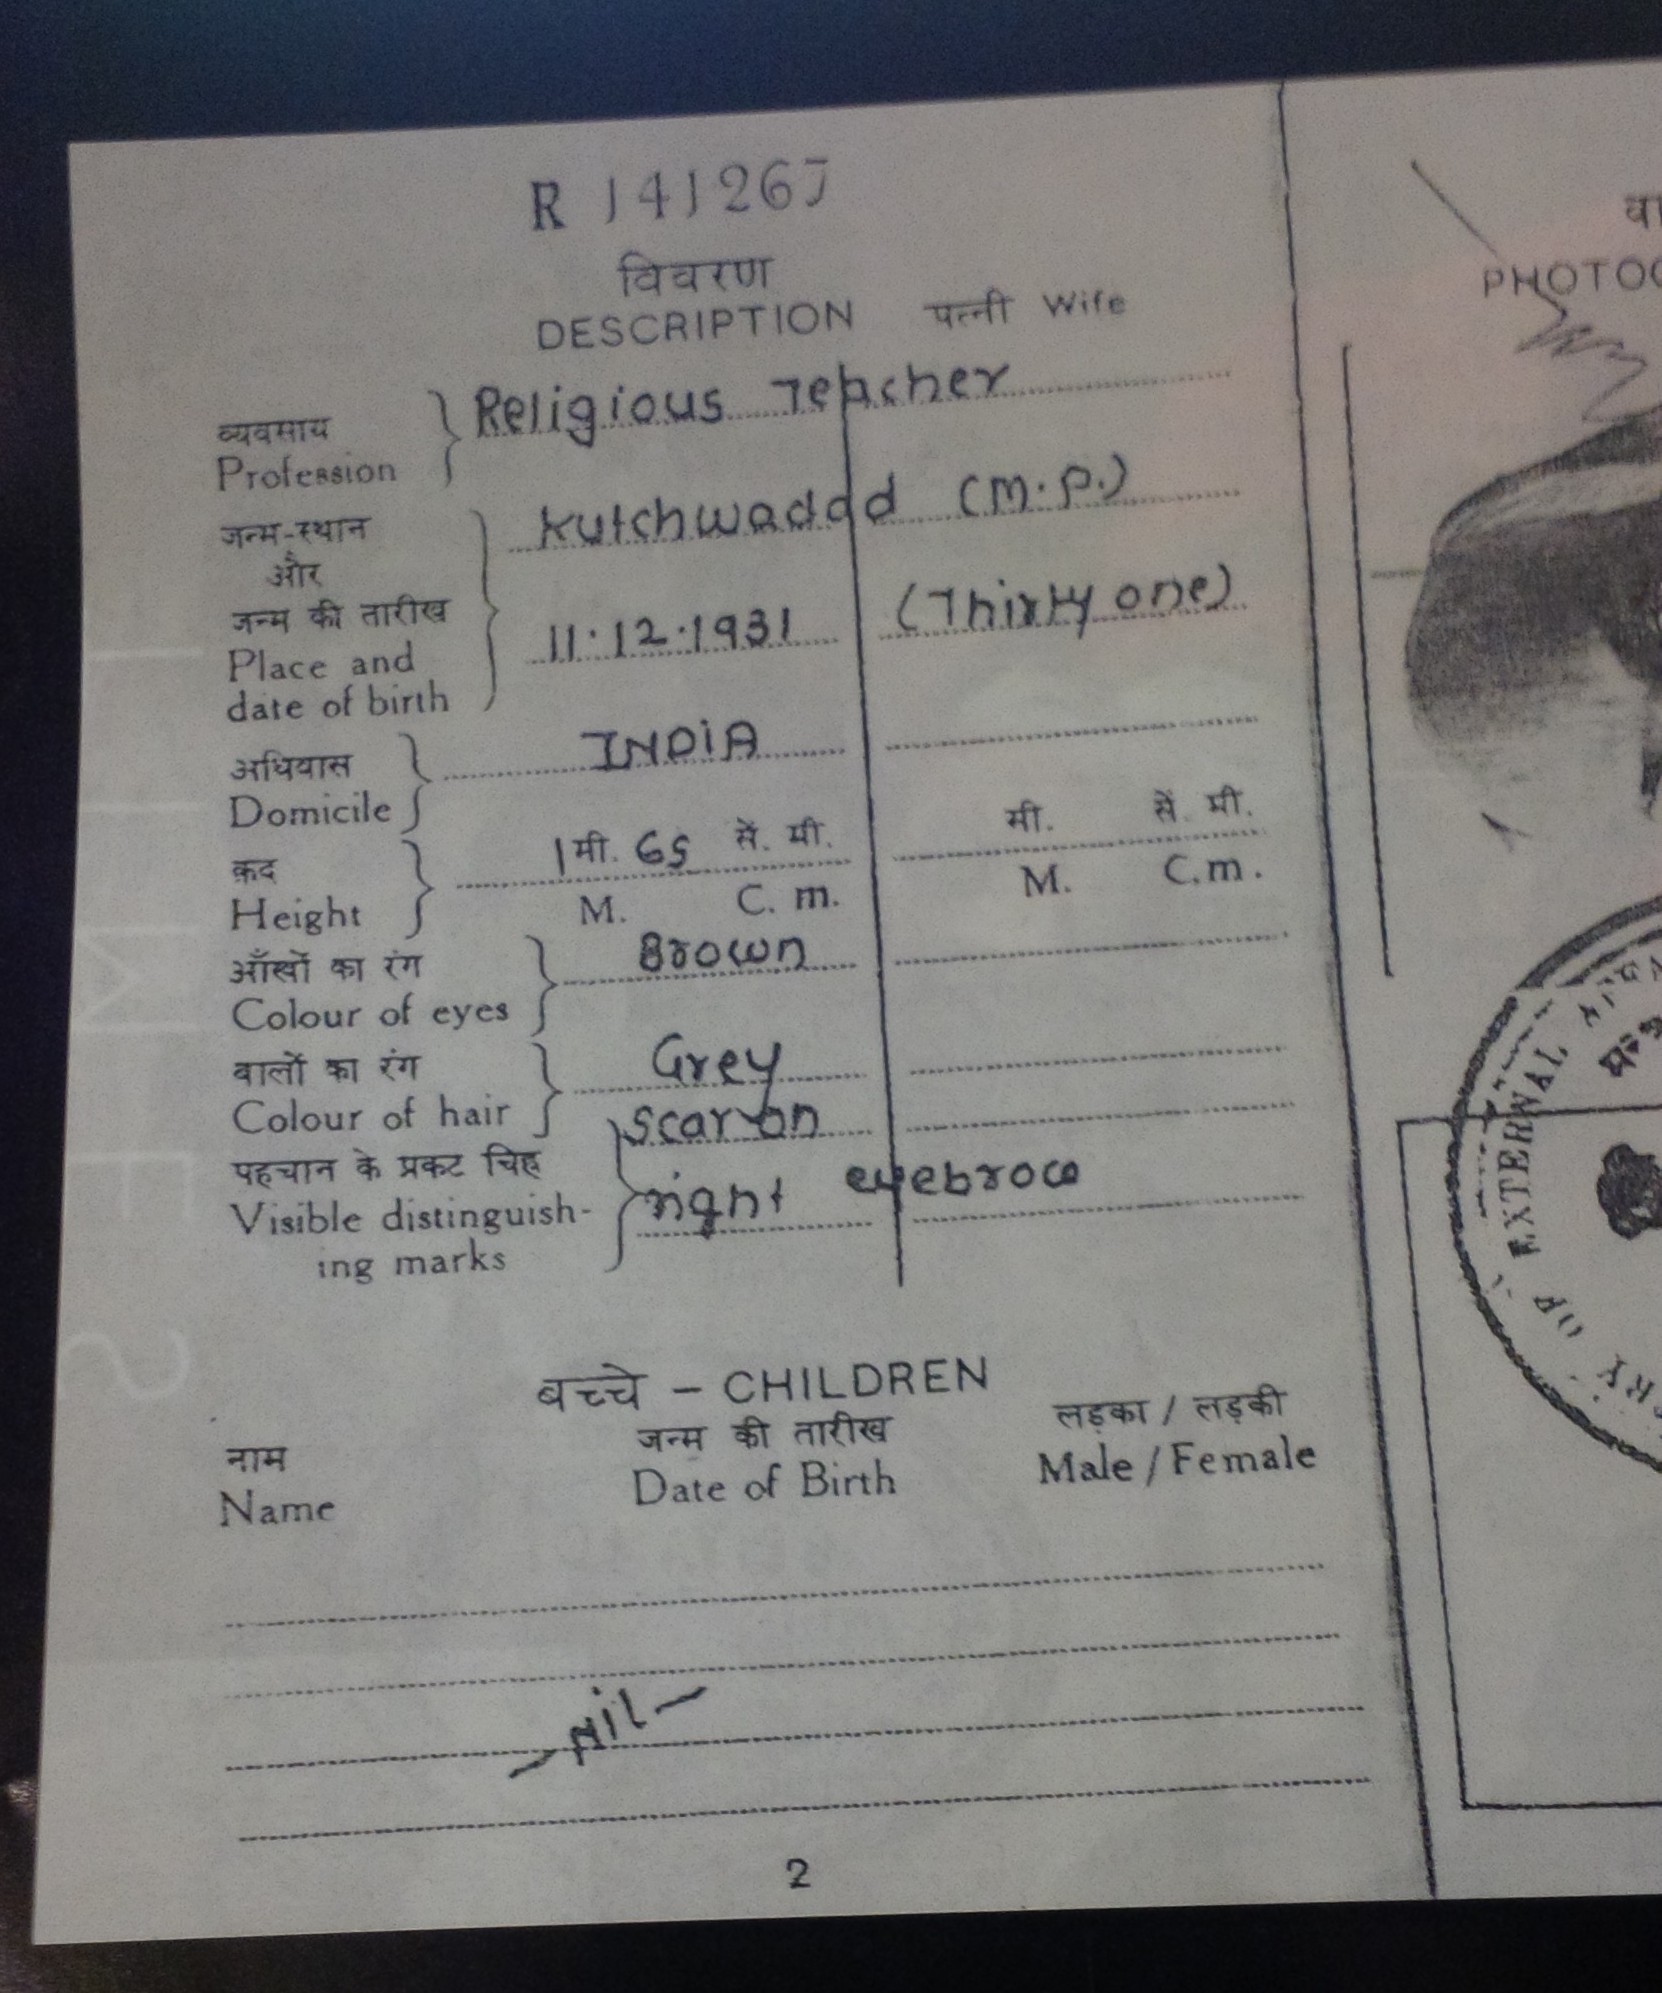 R 141267
विवरण
DESCRIPTION पत्नी Wife
व्यवसाय
Profession
Religious Teacher
जन्म-स्थान
और
जन्म की तारीख
Place and
date of birth
Kutchwadad (M.P.)
11.12.1931 (Thirty one)
अधिवास
Domicile
INDIA
क़द
Height
1 मी. 65 सें. मी. मी. सें. मी.
M. C. m. M. C.m.
आँखों का रंग
Colour of eyes
Brown
बालों का रंग
Colour of hair
Grey
पहचान के प्रकट चिह्न
Visible distinguish-
ing marks
scar on
right eyebrow
बच्चे – CHILDREN
नाम जन्म की तारीख लड़का / लड़की
Name Date of Birth Male / Female
– Nil –
2
PHOTOG
OF EXTERNAL